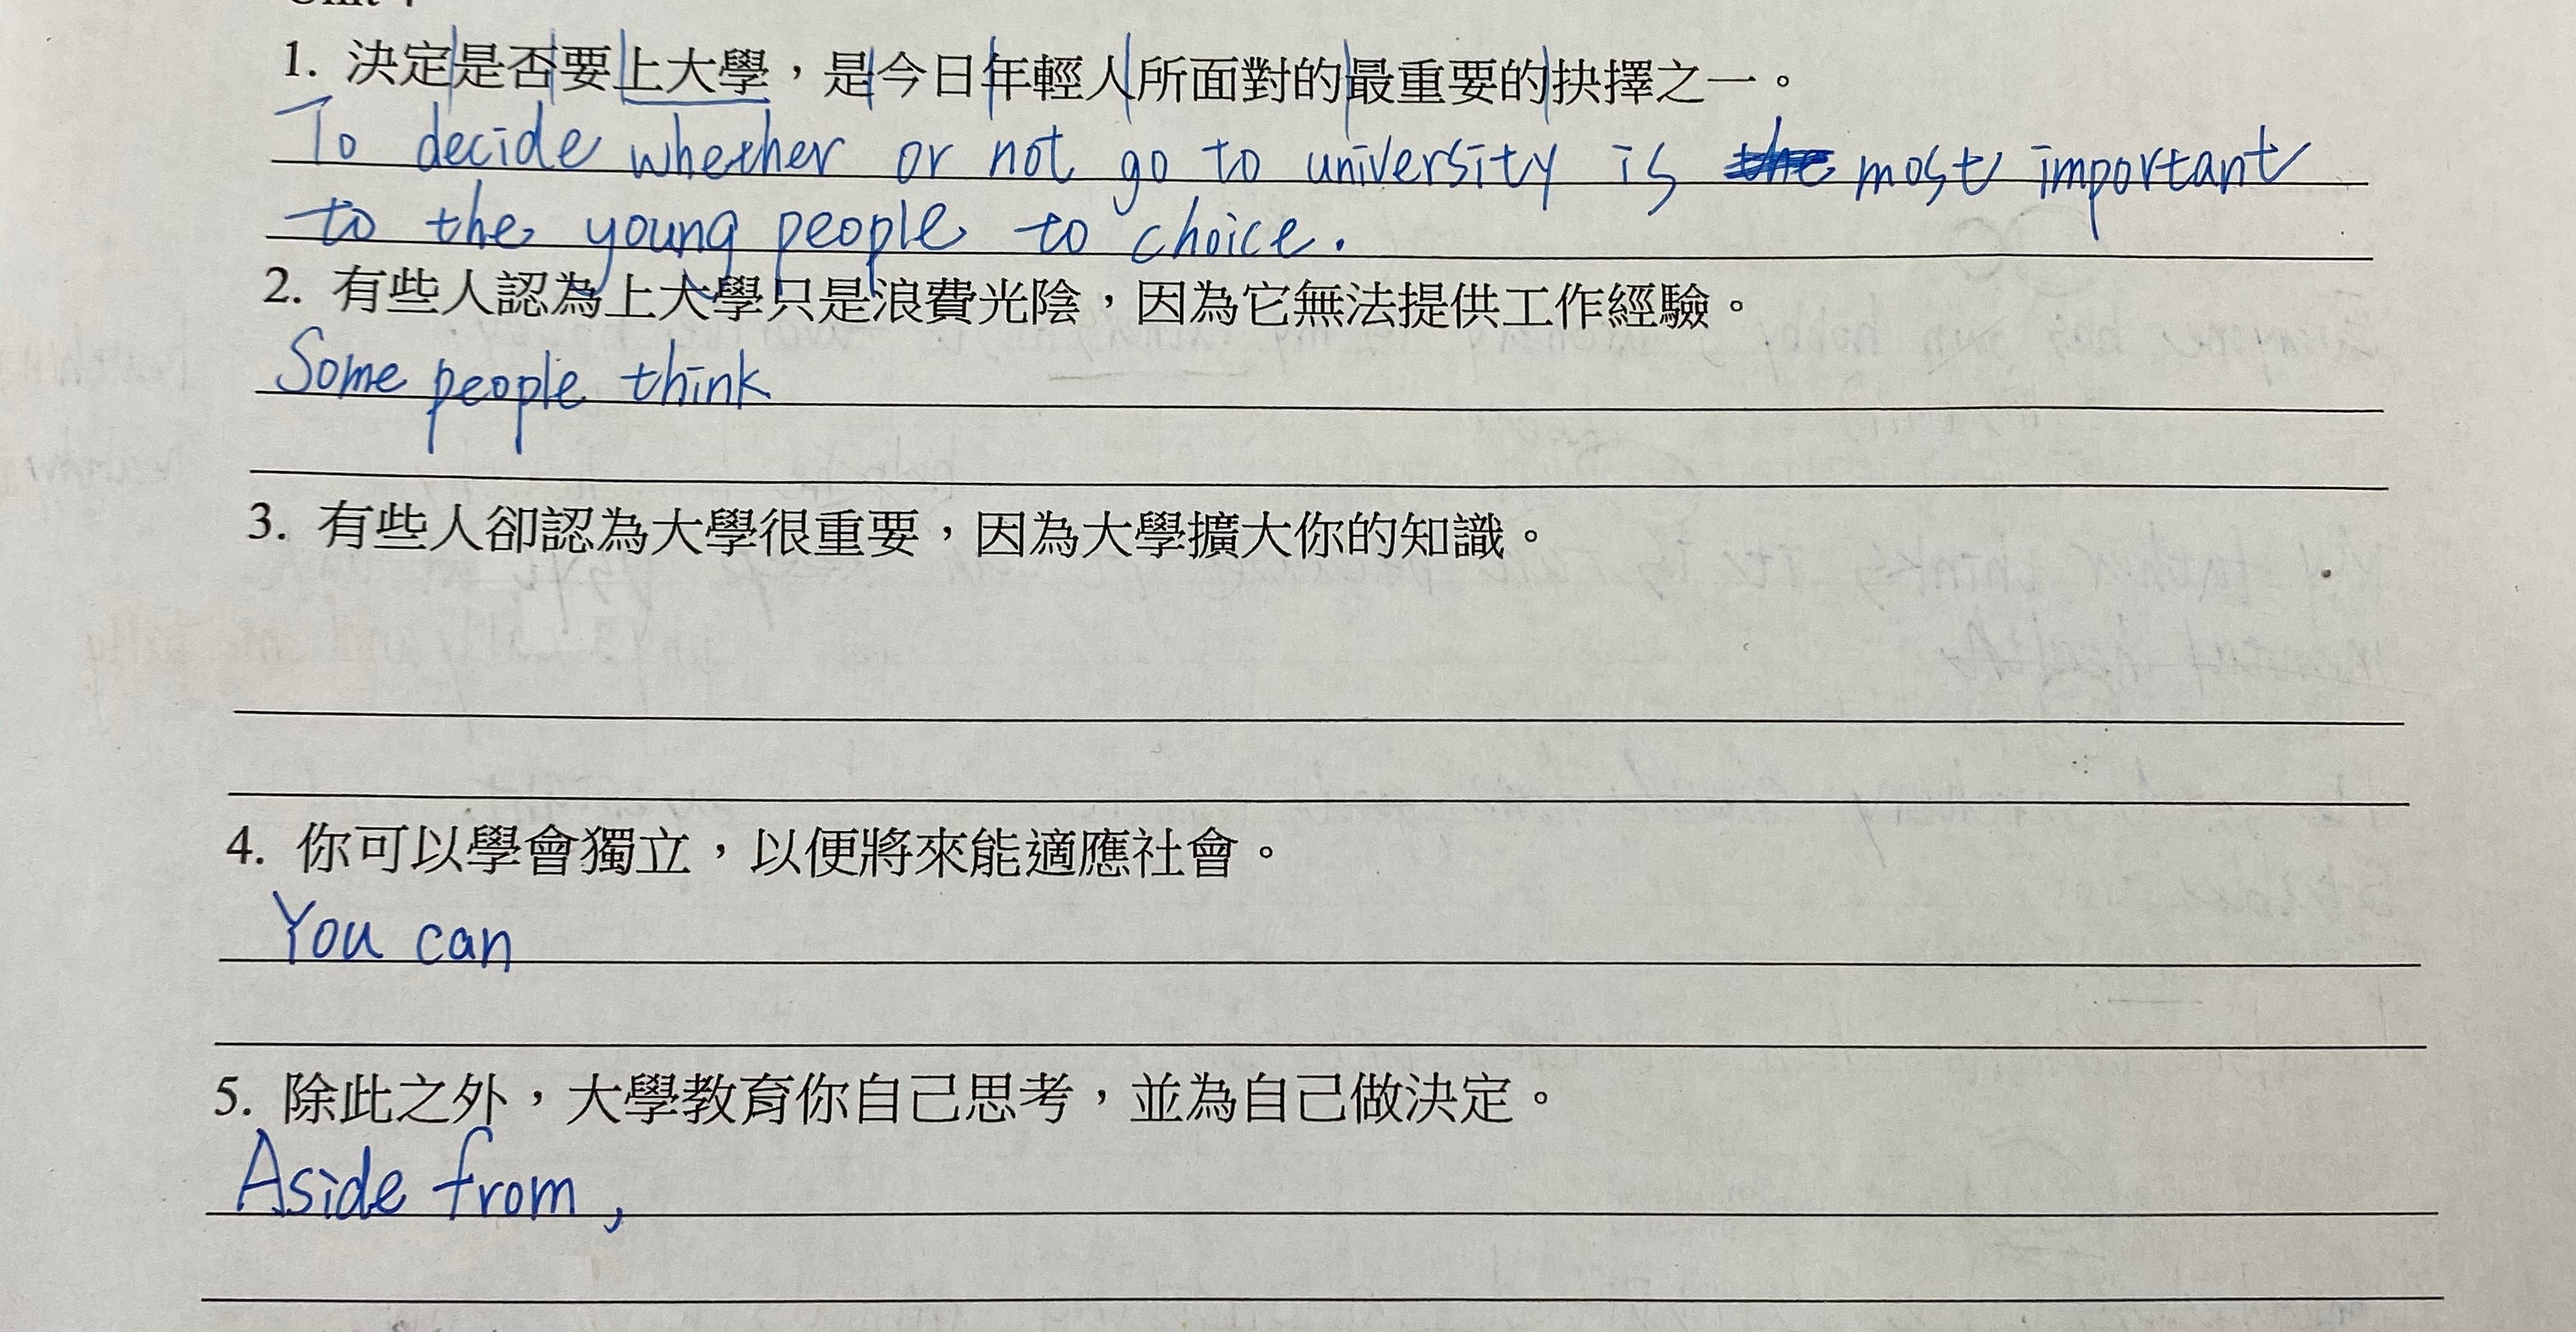 1. 決定是否要上大學，是今日年輕人所面對的最重要的抉擇之一。
To decide whether or not go to university is the most important
to the young people to choice.
2. 有些人認為上大學只是浪費光陰，因為它無法提供工作經驗。
Some people think
3. 有些人卻認為大學很重要，因為大學擴大你的知識。
4. 你可以學會獨立，以便將來能適應社會。
You can
5. 除此之外，大學教育你自己思考，並為自己做決定。
Aside from,